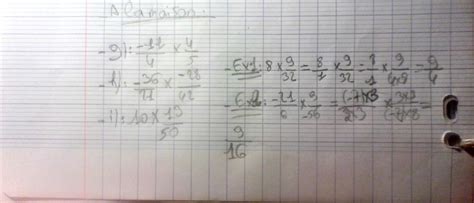 A la maison:
- g): -11/4 × 4/5
- h): -36/21 × -28/42
- i): 10 × 13/50
- Ex1: 8 × 9/32 = 8/1 × 9/32 = 8/1 × 9/4×8 = 9/4
- Ex2: -21/6 × 9/-56 = (-7)×3/2×3 × 3×3/(-7)×8 =
9/16